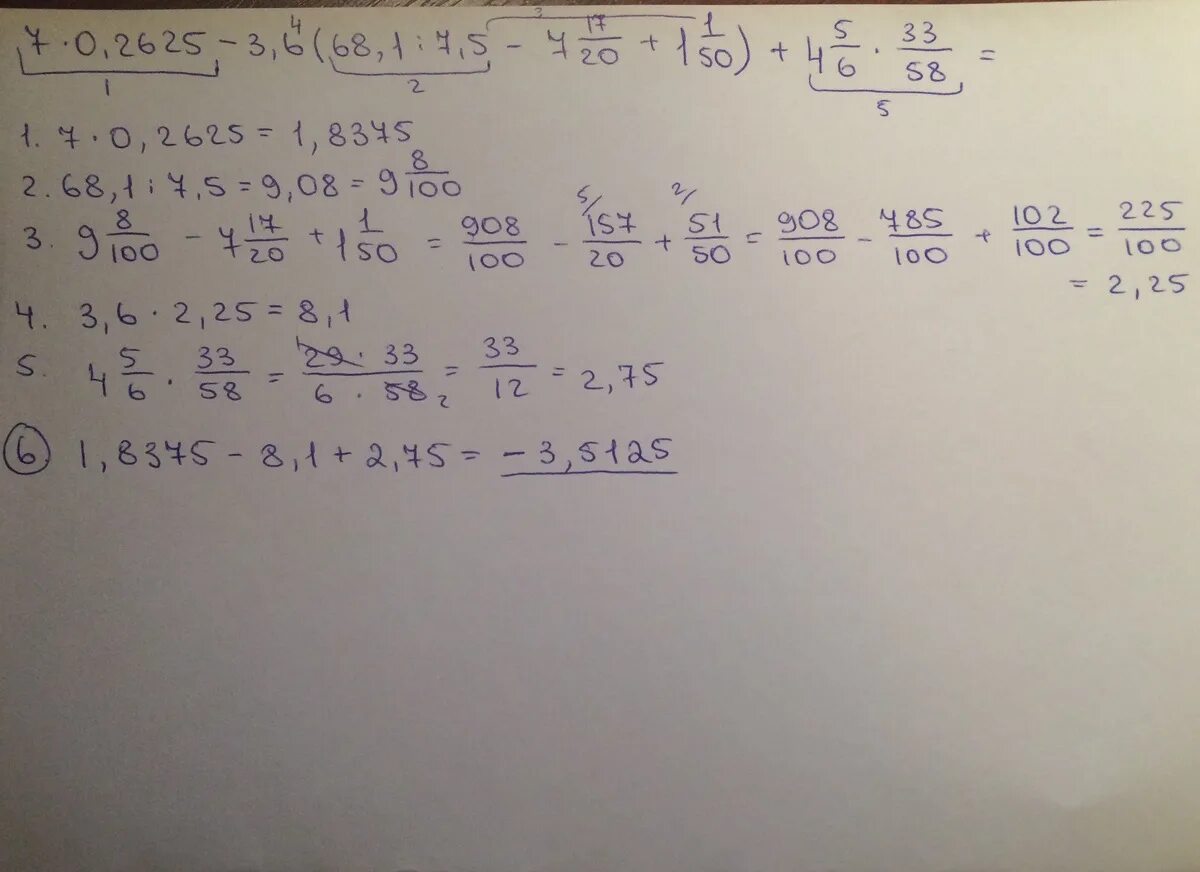 7 · 0,2625 - 3,6 (68,1 : 7,5 - 7 17/20 + 1 1/50) + 4 5/6 · 33/58 =
1 2 3 4 5
1. 7 · 0,2625 = 1,8375
2. 68,1 : 7,5 = 9,08 = 9 8/100
3. 9 8/100 - 7 17/20 + 1 1/50 = 908/100 - 157/20 + 51/50 = 908/100 - 785/100 + 102/100 = 225/100
= 2,25
4. 3,6 · 2,25 = 8,1
5. 4 5/6 · 33/58 = 29 · 33 / 6 · 58 = 33/12 = 2,75
6 1,8375 - 8,1 + 2,75 = -3,5125